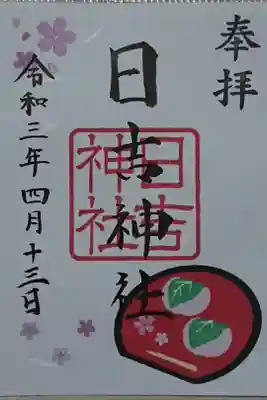 奉拝
日吉神社
日吉
神社
令和三年四月十三日